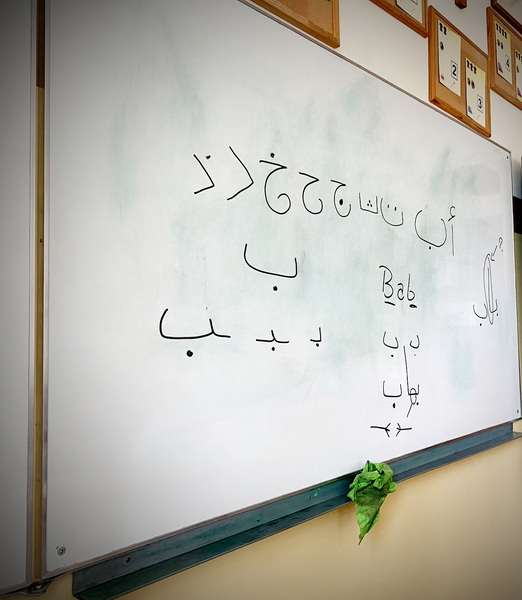 أ ب ت ث ج ح خ د ذ
ب
ب ـبـ ـب
Bab
ب ب
باب
باب ?
2
3
4